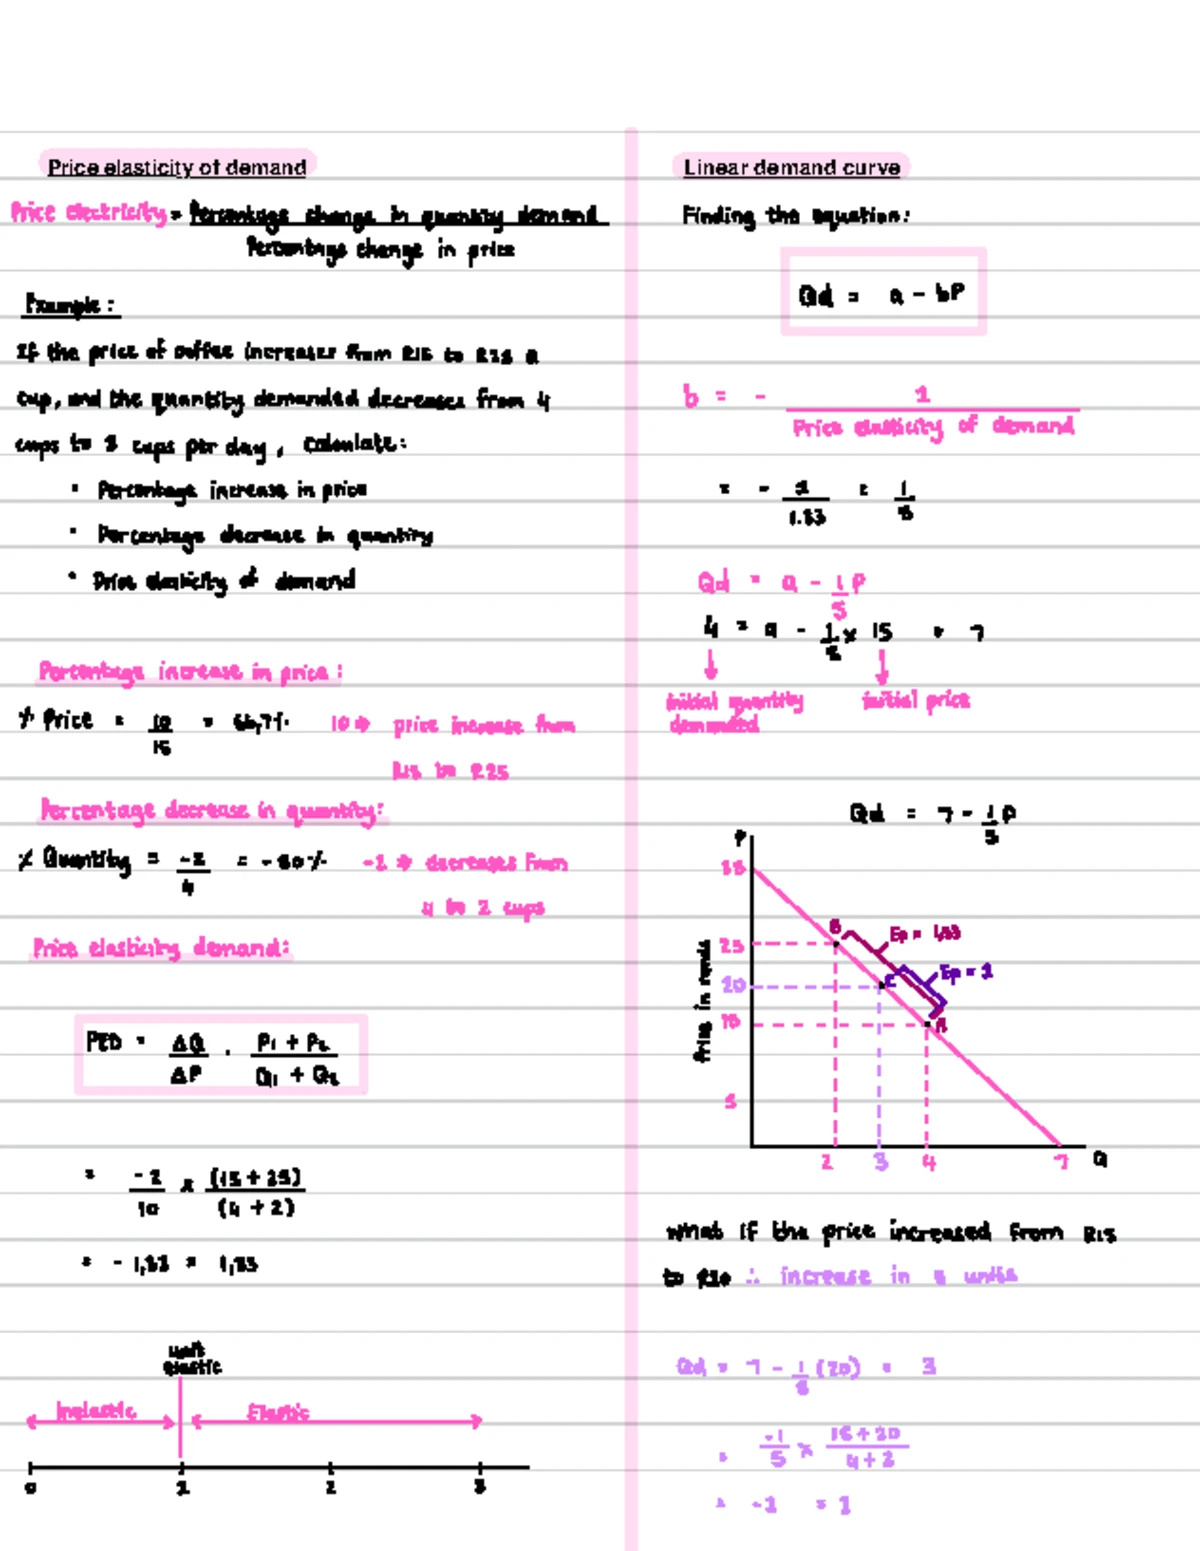 Price elasticity of demand
Price electricity = Percentage change in quantity demand
Percentage change in price
Example:
If the price of coffee increases from R15 to R25 a
cup, and the quantity demanded decreases from 4
cups to 2 cups per day, calculate:
• Percentage increase in price
• Percentage decrease in quantity
• Price elasticity of demand
Percentage increase in price:
% Price = 10/15 = 66,7% 10 → price increase from
R15 to R25
Percentage decrease in quantity:
% Quantity = -2/4 = -50% -2 → decreases from
4 to 2 cups
Price elasticity demand:
PED = ΔQ/ΔP . P1 + P2/Q1 + Q2
= -2/10 x (15+25)/(4+2)
= -1,33 = 1,33
Unit
Elastic
Inelastic Elastic
0 1 2 3
Linear demand curve
Finding the equation:
Qd = a - bP
b = - 1/Price elasticity of demand
= - 1/1.33 = 1/5
Qd = a - 1/5 P
4 = a - 1/5 x 15 = 7
initial quantity demanded
initial price
Qd = 7 - 1/5 P
P
35
25
20
15
5
Price in rands
B
Ep = 1,33
C
Ep = 1
A
2 3 4 7 Q
What if the price increased from R15
to R20 ∴ increase in 5 units
Qd = 7 - 1/5 (20) = 3
= -1/5 x 15+20/4+3
= -1 = 1